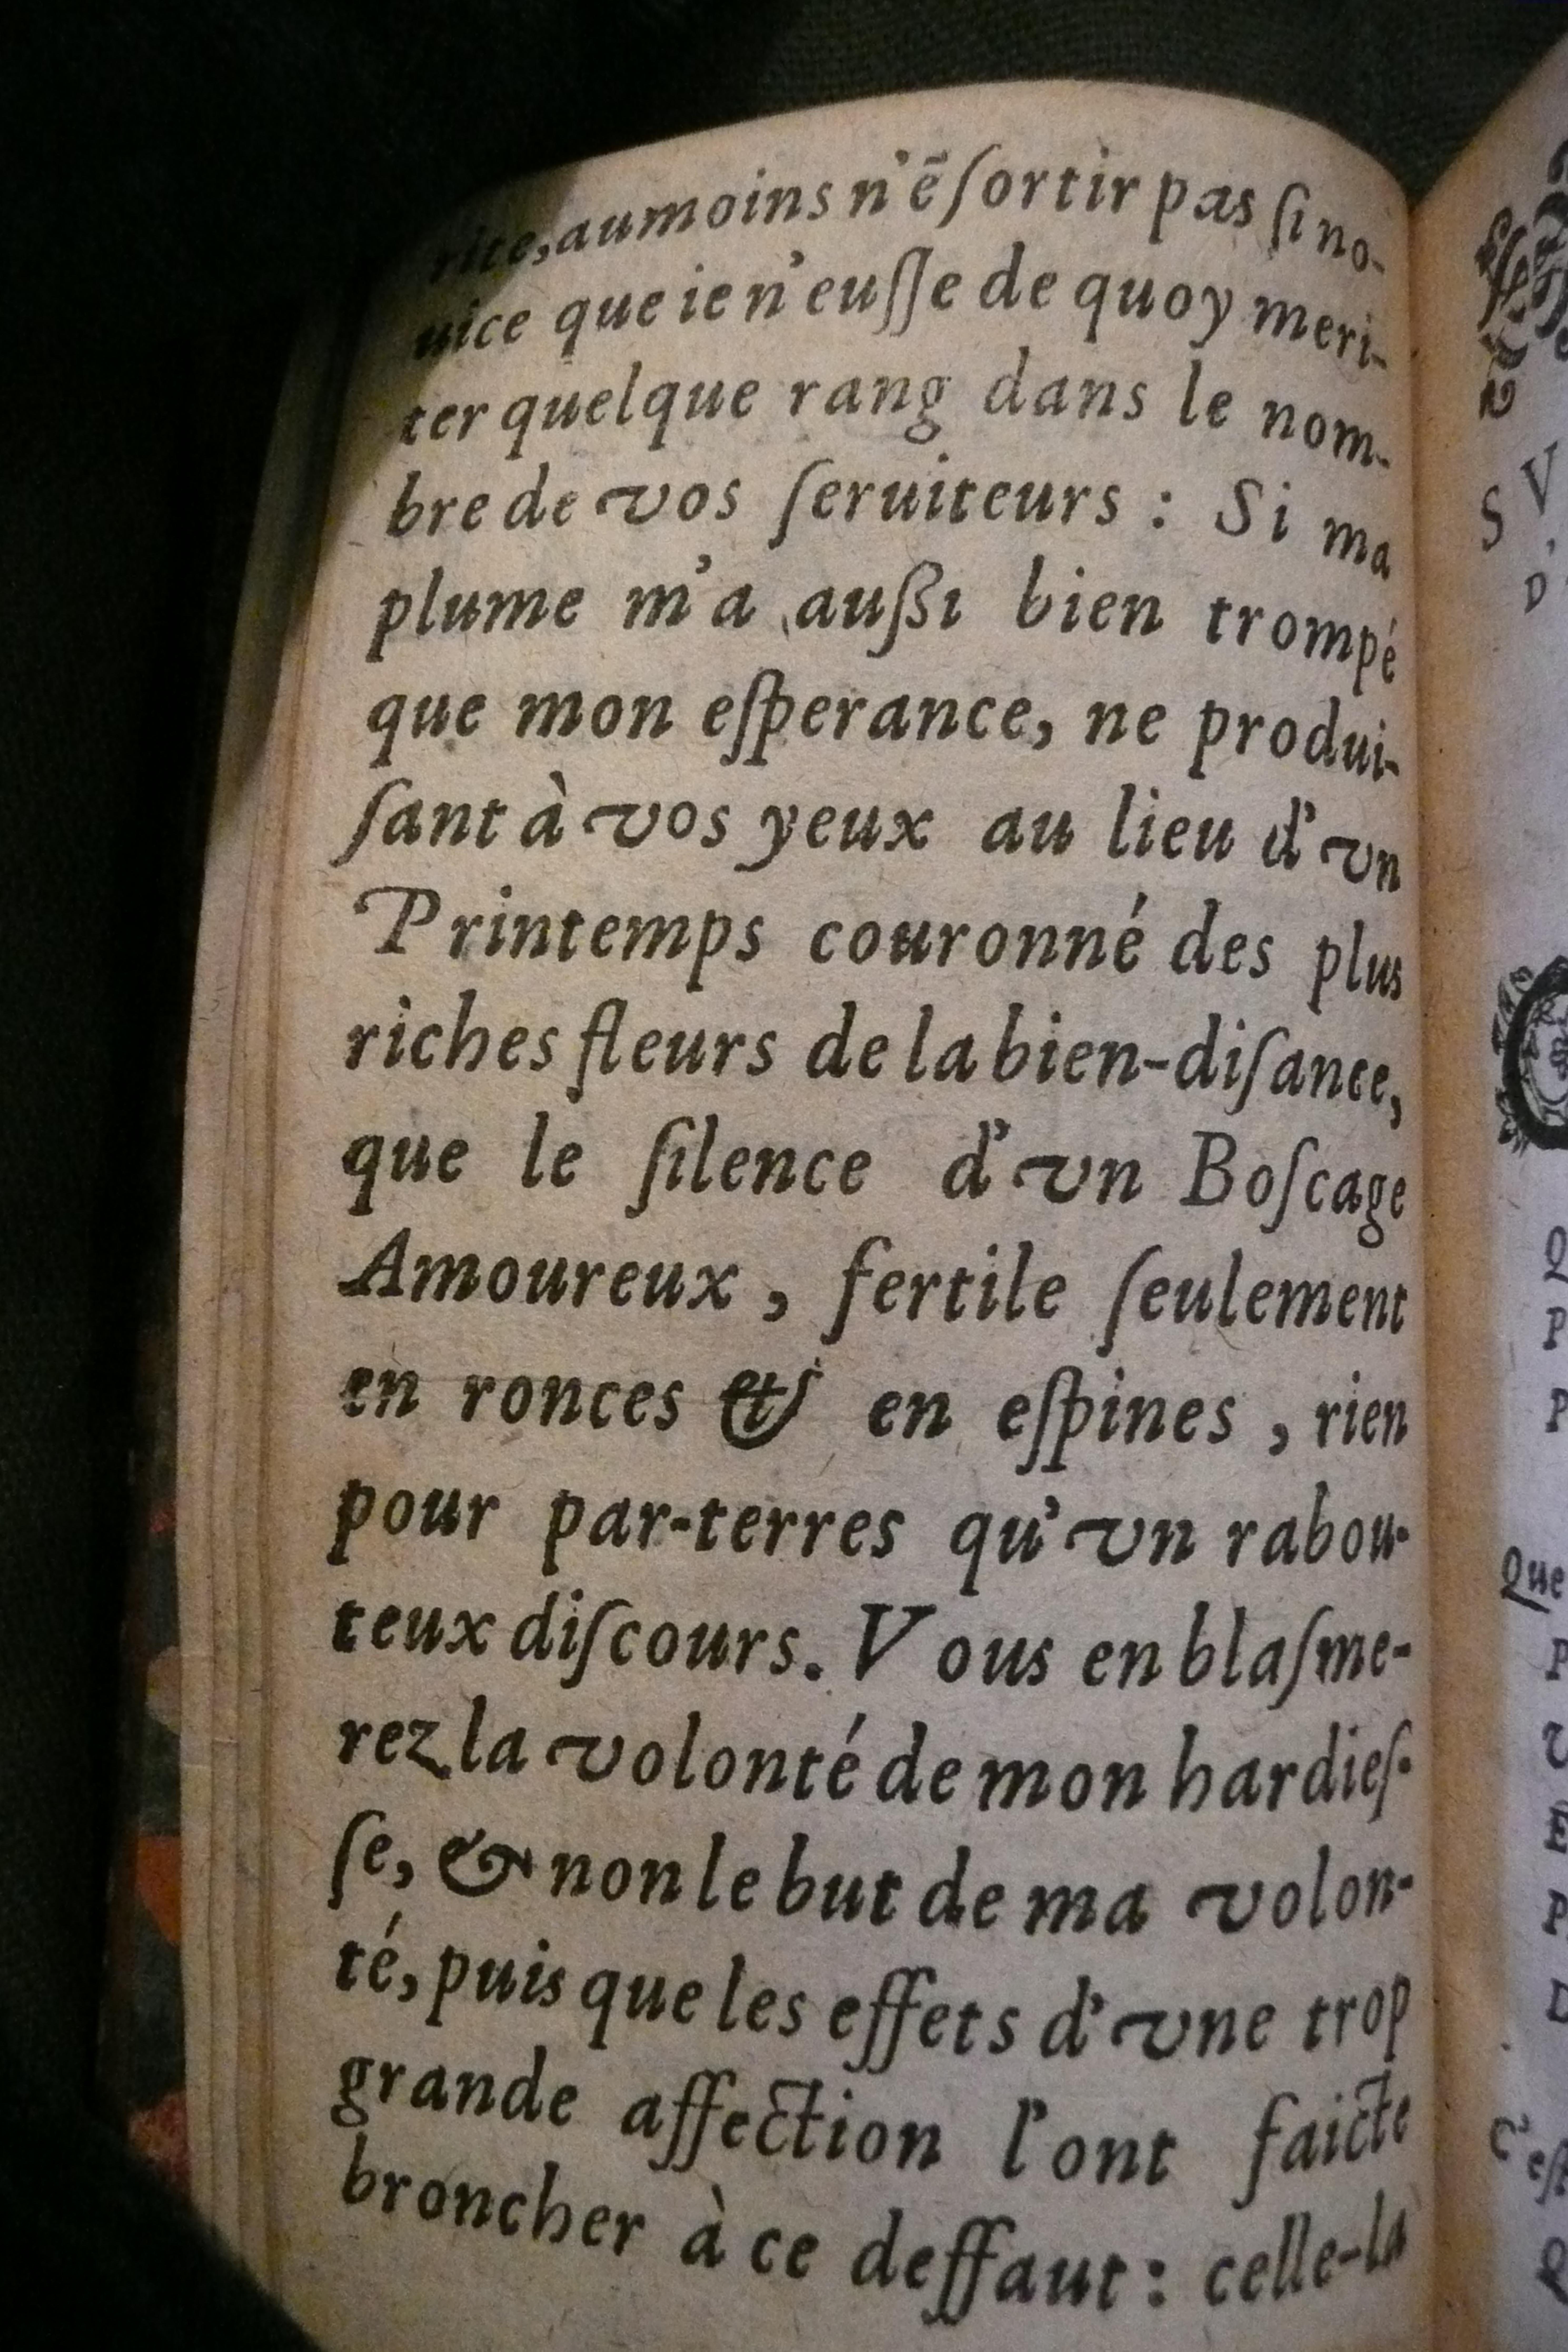 rite, aumoins n'ē ſortir pas ſi no-
uice que ie n'euſſe de quoy meri-
ter quelque rang dans le nom-
bre de vos ſeruiteurs : Si ma
plume m'a außi bien trompé
que mon eſperance, ne produi-
ſant à vos yeux au lieu d'vn
Printemps couronné des plus
riches fleurs de la bien-diſance,
que le ſilence d'vn Boſcage
Amoureux, fertile ſeulement
en ronces & en eſpines, rien
pour par-terres qu'vn rabou-
teux diſcours. Vous en blaſme-
rez la volonté de mon hardieſ-
ſe, & non le but de ma volon-
té, puis que les effets d'vne trop
grande affection l'ont faicte
broncher à ce deffaut : celle-la
S V
D
Q
P
P
Que
P
V
E
P
D
C'eſt
Q